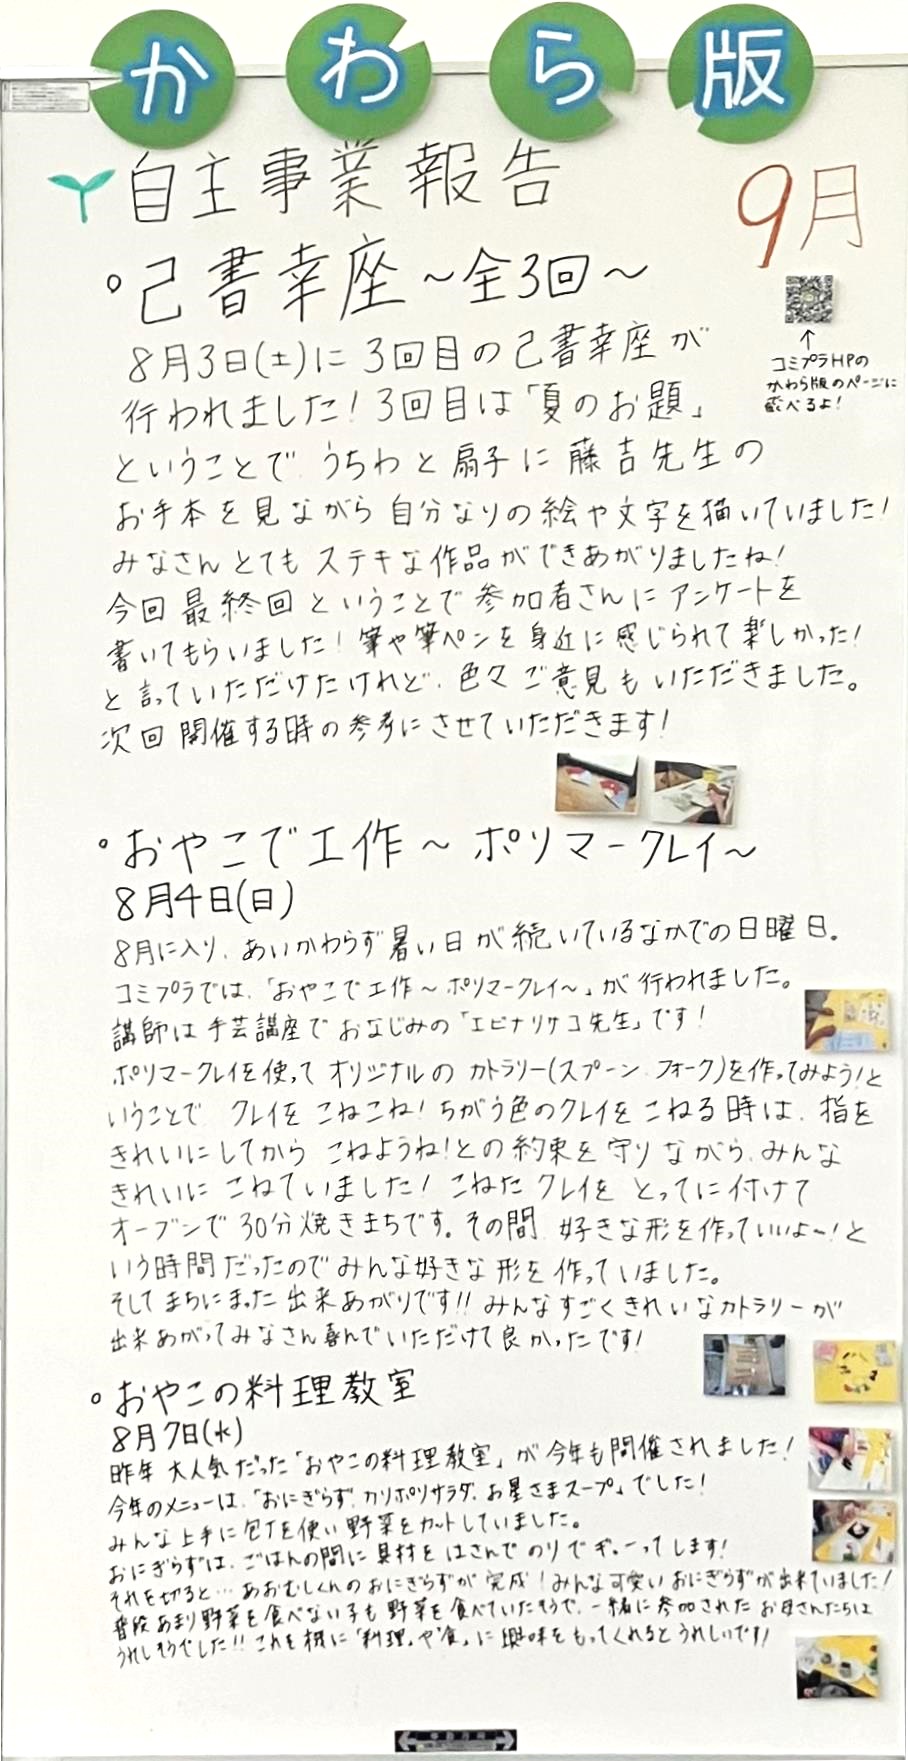 かわら版
自主事業報告
9月
°己書幸座～全3回～
↑
コミプラHPの
かわら版のページに
飛べるよ!
8月3日(土)に3回目の己書幸座が
行われました!3回目は「夏のお題」
ということで、うちわと扇子に藤吉先生の
お手本を見ながら自分なりの絵や文字を描いていました!
みなさんとてもステキな作品ができあがりましたね!
今回最終回ということで参加者さんにアンケートを
書いてもらいました!筆や筆ペンを身近に感じられて楽しかった!
と言っていただけたけれど、色々ご意見もいただきました。
次回開催する時の参考にさせていただきます!
°おやこで工作～ポリマークレイ～
8月4日(日)
8月に入り、あいかわらず暑い日が続いているなかでの日曜日。
コミプラでは、「おやこで工作～ポリマークレイ～」が行われました。
講師は手芸講座でおなじみの「エビナリサコ先生」です!
ポリマークレイを使ってオリジナルのカトラリー(スプーン、フォーク)を作ってみよう!と
いうことで、クレイをこねこね!ちがう色のクレイをこねる時は、指を
きれいにしてからこねようね!との約束を守りながら、みんな
きれいにこねていました!こねたクレイをとってに付けて
オーブンで30分焼きまちです。その間、好きな形を作っていいよ～!と
いう時間だったのでみんな好きな形を作っていました。
そしてまちにまった出来あがりです!!みんなすごくきれいなカトラリーが
出来あがってみなさん喜んでいただけて良かったです!
°おやこの料理教室
8月7日(水)
昨年大人気だった「おやこの料理教室」が今年も開催されました!
今年のメニューは、「おにぎらず、カリポリサラダ、お星さまスープ」でした!
みんな上手に包丁を使い野菜をカットしていました。
おにぎらずは、ごはんの間に具材をはさんでのりでギューってします!
それを切ると…あおむしくんのおにぎらずが完成!みんな可愛いおにぎらずが出来ていました!
普段あまり野菜を食べない子も野菜を食べていたそうで、一緒に参加されたお母さんたちは
うれしそうでした!!これを機に「料理」や「食」に興味をもってくれるとうれしいです!